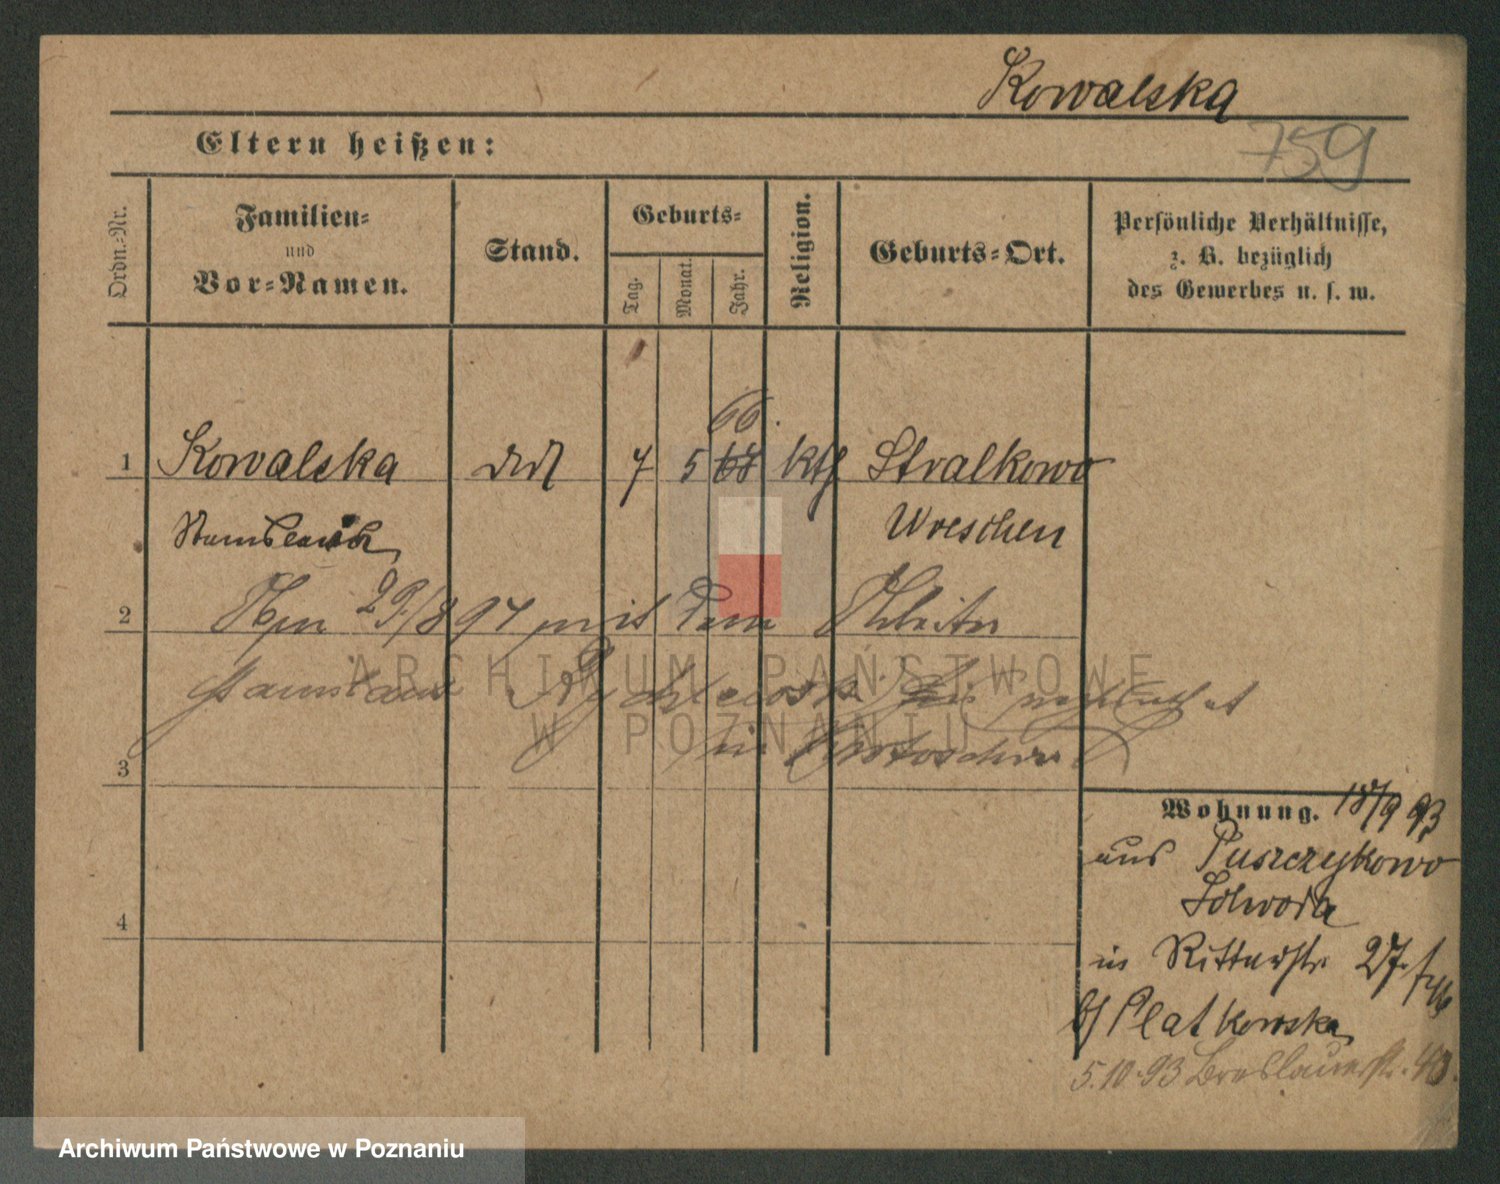 Kowalska
759
Eltern heißen:
Ordn.-Nr.
Familien-
und
Vor-Namen.
Stand.
Geburts-
Tag.
Monat.
Jahr.
Religion.
Geburts-Ort.
Persönliche Verhältnisse,
z. B. bezüglich
des Gewerbes u. s. w.
66.
1 Kowalska 7 5 68 kth Stralkowo
Stanislawa Wreschen
2 29/8 97 mit dem Arbeiter
in Krotoschin
3
4
Wohnung. 18/9 93
aus Puszczykowo
in Ritterstr 27.
b/ Platkowska
5.10.93 Breslauerstr. 40.
ARCHIWUM PAŃSTWOWE
W POZNANIU
Archiwum Państwowe w Poznaniu